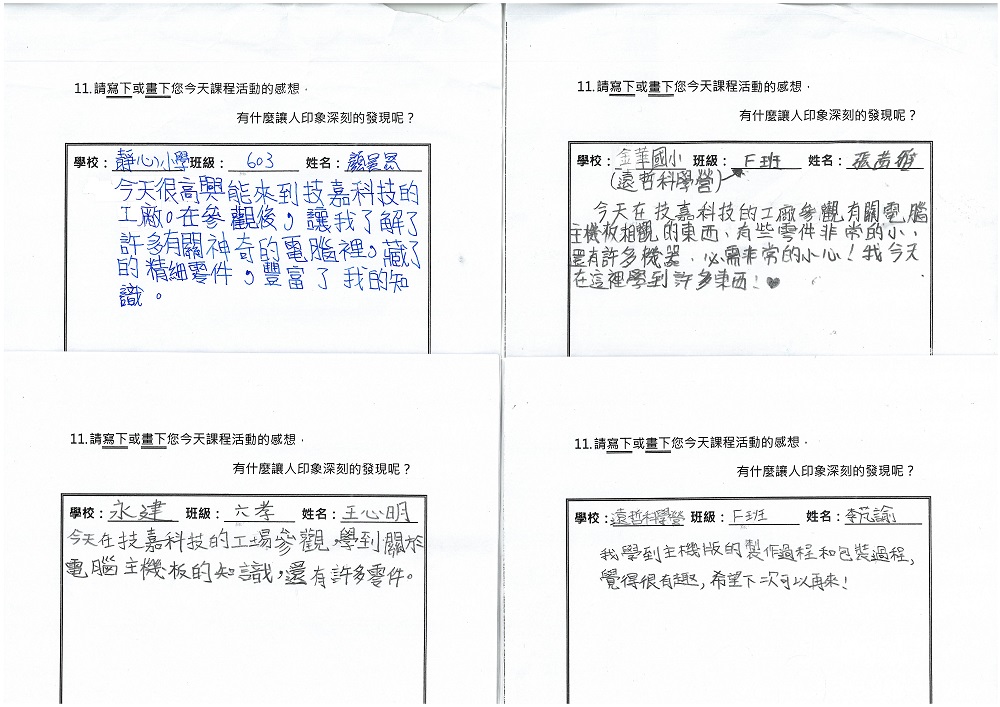 11.請寫下或畫下您今天課程活動的感想,
有什麼讓人印象深刻的發現呢?
學校:靜心小學 班級:603 姓名:
今天很高興能來到技嘉科技的
工廠。在參觀後,讓我了解了
許多有關神奇的電腦裡,藏了
的精細零件,豐富了我的知
識。
11.請寫下或畫下您今天課程活動的感想,
有什麼讓人印象深刻的發現呢?
學校:金華國小 班級:F班 姓名:張
(遠哲科學營)
今天在技嘉科技的工廠參觀有關電腦
主機板相觀的東西、有些零件非常的小、
還有許多機器、必需非常的小心!我今天
在這裡學到許多東西!♥
11.請寫下或畫下您今天課程活動的感想,
有什麼讓人印象深刻的發現呢?
學校:永建 班級:六孝 姓名:王心明
今天在技嘉科技的工場參觀,學到關於
電腦主機板的知識,還有許多零件。
11.請寫下或畫下您今天課程活動的感想,
有什麼讓人印象深刻的發現呢?
學校:遠哲科學營 班級:F班 姓名:李芃諭
我學到主機版的製作過程和包裝過程,
覺得很有趣,希望下次可以再來!